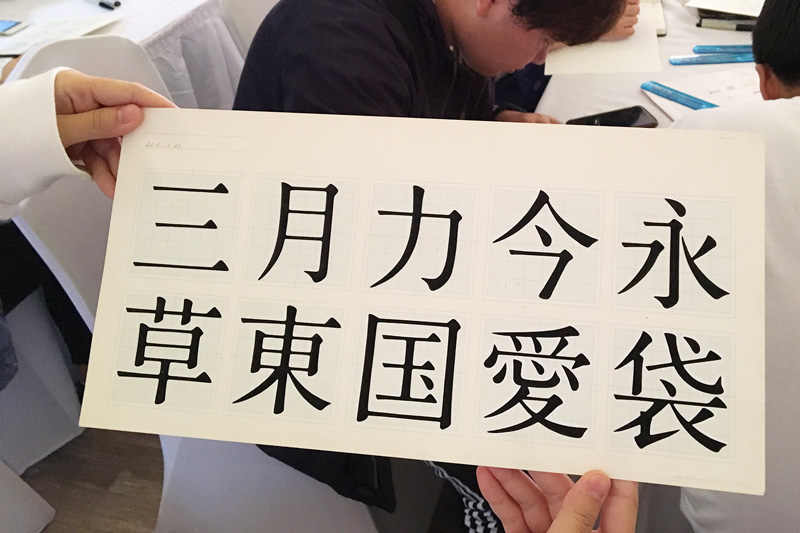 三月力今永
草東国愛袋